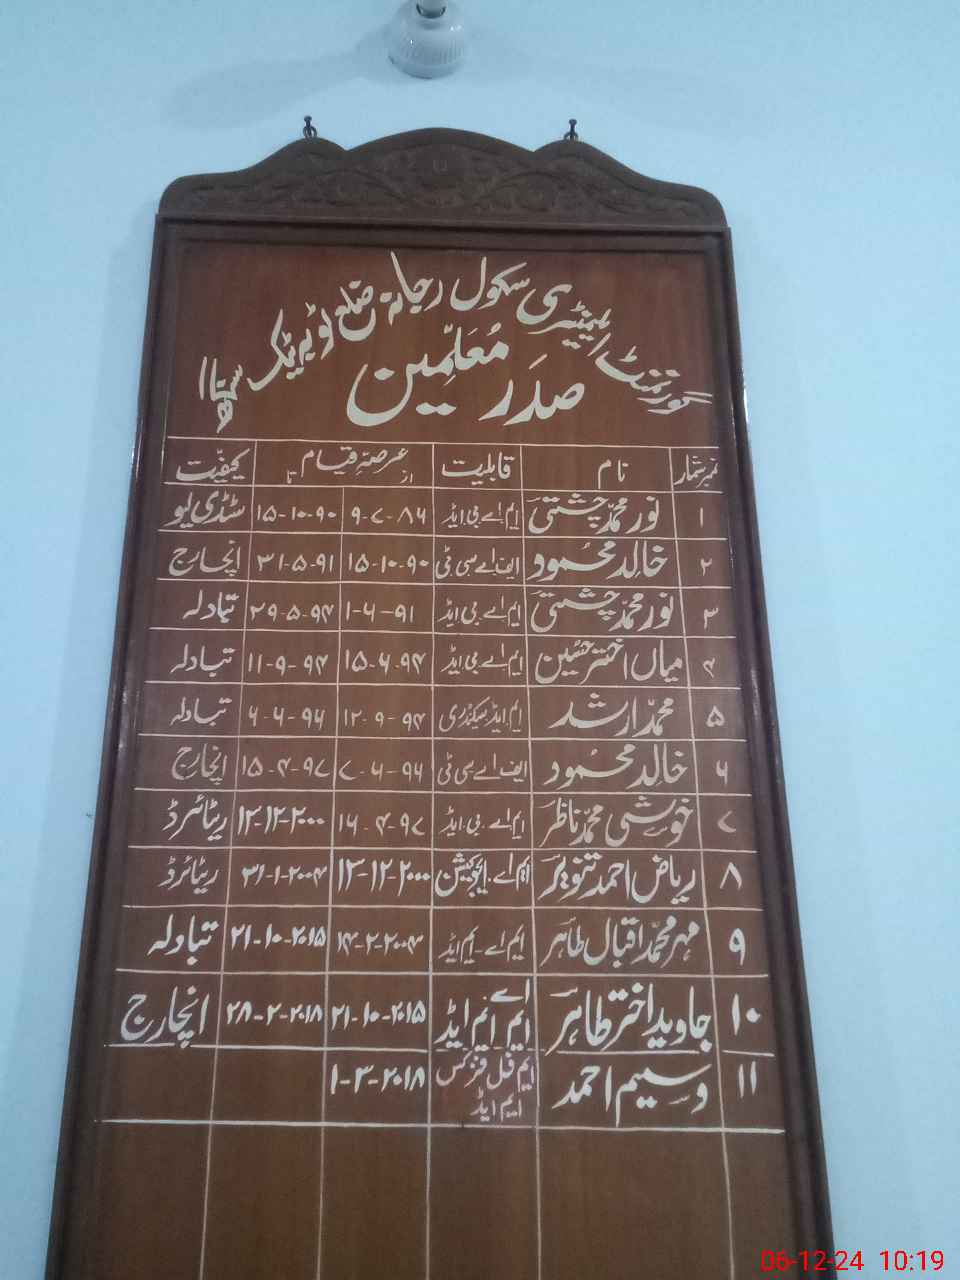 گورنمنٹ ایلیمنٹری سکول رجانہ ضلع ٹوبہ ٹیک سنگھ
صدر معلّمین
نمبر شمار نام قابلیت عرصہ قیام از تا کیفیّت
۱ نور محمد چشتی ایم اے بی ایڈ ۹-۷-۸۶ ۱۵-۱۰-۹۰ سٹڈی لیو
۲ خالد محمود ایف اے سی ٹی ۱۵-۱۰-۹۰ ۳۱-۵-۹۱ انچارج
۳ نور محمد چشتی ایم اے بی ایڈ ۱-۶-۹۱ ۲۹-۵-۹۴ تبادلہ
۴ میاں اختر حسین ایم اے بی ایڈ ۱۵-۶-۹۴ ۱۱-۹-۹۴ تبادلہ
۵ محمد ارشد ایم ایڈ سیکنڈری ۱۲-۹-۹۴ ۶-۶-۹۶ تبادلہ
۶ خالد محمود ایف اے سی ٹی ۷-۶-۹۶ ۱۵-۴-۹۷ انچارج
۷ خوشی محمد ناظر ایم اے بی ایڈ ۱۶-۴-۹۷ ۱۲-۱۲-۲۰۰۰ ریٹائرڈ
۸ ریاض احمد تنویر ایم اے ایجوکیشن ۱۳-۱۲-۲۰۰۰ ۳۱-۱-۲۰۰۴ ریٹائرڈ
۹ مہر محمد اقبال طاہر ایم اے ایم ایڈ ۱۴-۲-۲۰۰۴ ۲۱-۱۰-۲۰۱۵ تبادلہ
۱۰ جاوید اختر طاہر ایم اے ایم ایڈ ۲۱-۱۰-۲۰۱۵ ۲۸-۲-۲۰۱۸ انچارج
۱۱ وسیم احمد ایم فل فزکس ایم ایڈ ۱-۳-۲۰۱۸
06-12-24 10:19